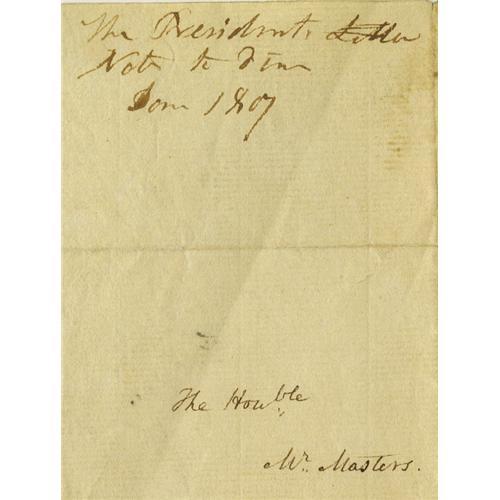 The Presidents Letter
Note to Dine
Jan 1807
The Honble.
Mr. Masters.